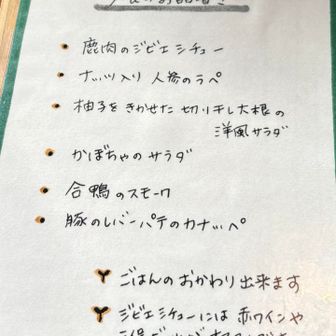 鹿肉のジビエシチュー
ナッツ入り 人参のラペ
柚子をきかせた 切り干し大根の
洋風サラダ
かぼちゃのサラダ
合鴨のスモーク
豚のレバーパテのカナッペ
ごはんのおかわり出来ます
ジビエシチューには 赤ワインや